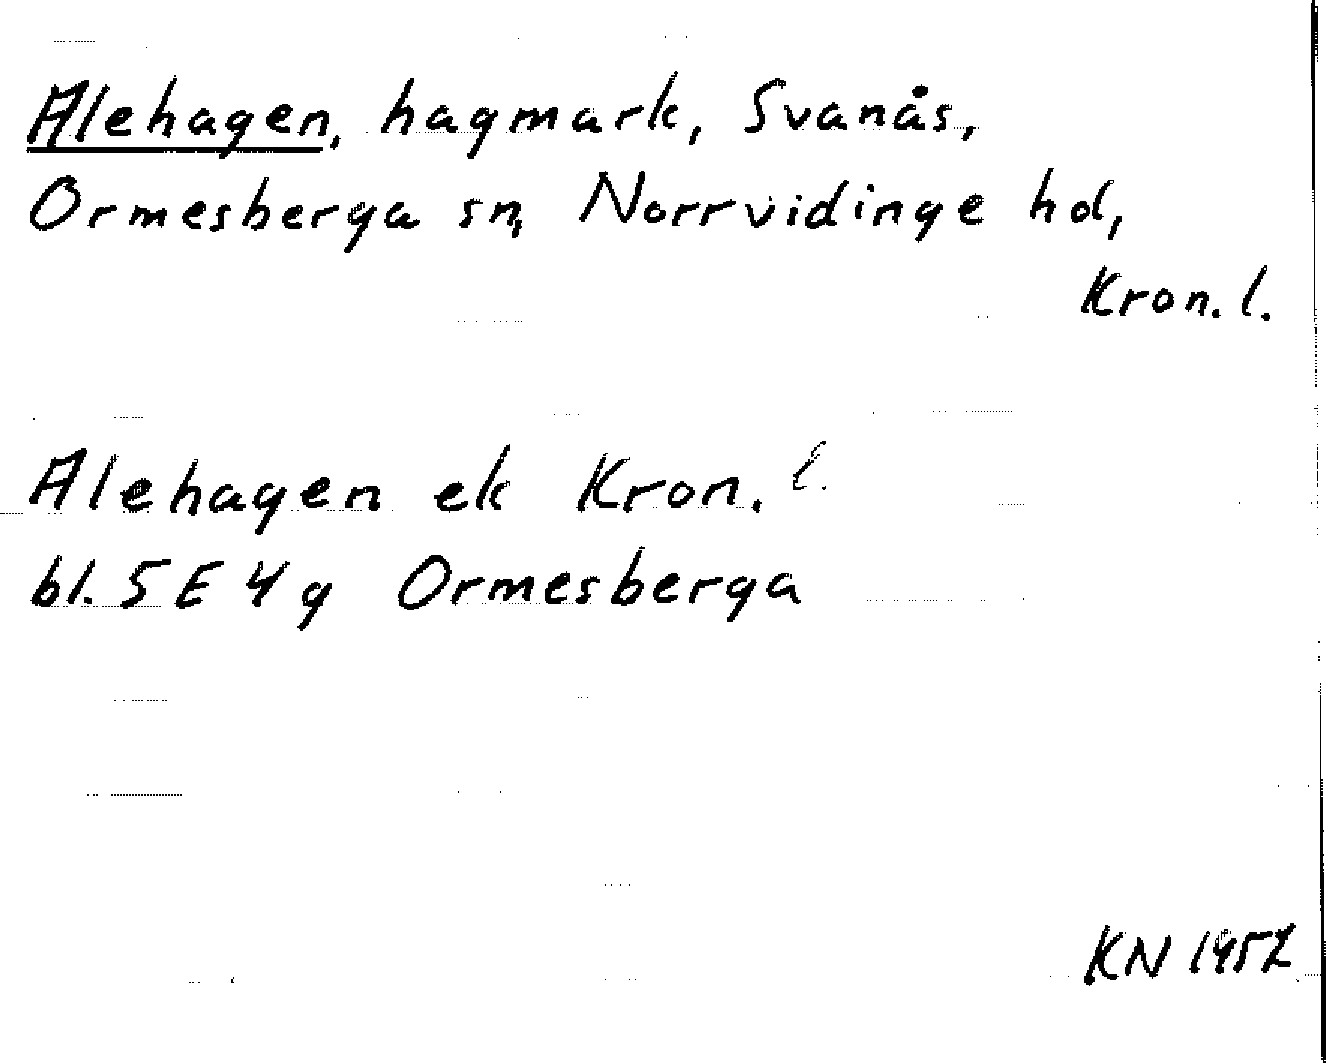 Alehagen, hagmark, Svanås,
Ormesberga sn, Norrvidinge hd,
Kron. l.
Alehagen ek Kron. l.
bl. 5 E 4 g Ormesberga
KN 1952